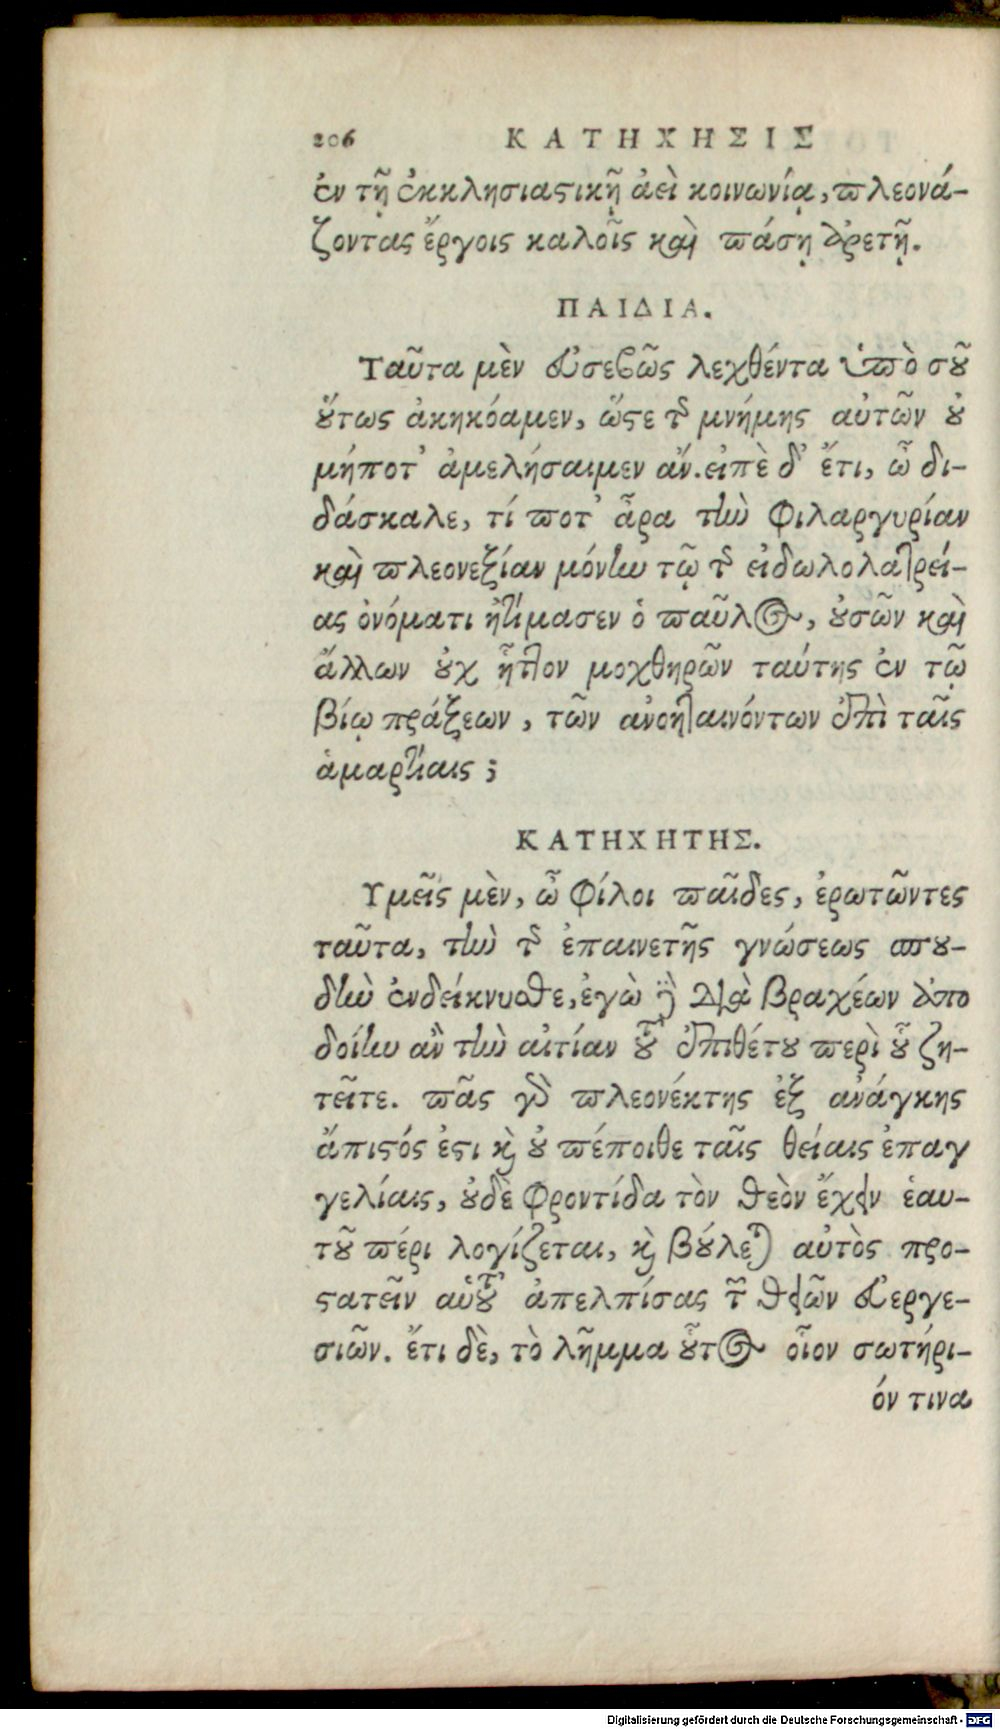 206 ΚΑΤΗΧΗΣΙΣ
ἐν τῇ ἐκκλησιαστικῇ ἀεὶ κοινωνίᾳ, πλεονά-
ζοντας ἔργοις καλοῖς καὶ πάσῃ ἀρετῇ.
ΠΑΙΔΙΑ.
Ταῦτα μὲν εὐσεβῶς λεχθέντα ὑπὸ σοῦ
οὕτως ἀκηκόαμεν, ὥστε τῆς μνήμης αὐτῶν οὐ
μήποτ' ἀμελήσαιμεν ἄν. εἰπὲ δ' ἔτι, ὦ δι-
δάσκαλε, τί ποτ' ἆρα τὴν φιλαργυρίαν
καὶ πλεονεξίαν μόνην τῷ τῆς εἰδωλολατρεί-
ας ὀνόματι ἠτίμασεν ὁ παῦλος, οὐσῶν καὶ
ἄλλων οὐχ ἧττον μοχθηρῶν ταύτης ἐν τῷ
βίῳ πράξεων, τῶν ἀνοηταινόντων ἐπὶ ταῖς
ἁμαρτίαις;
ΚΑΤΗΧΗΤΗΣ.
Υμεῖς μὲν, ὦ φίλοι παῖδες, ἐρωτῶντες
ταῦτα, τὴν τῆς ἐπαινετῆς γνώσεως σπου-
δὴν ἐνδείκνυσθε, ἐγὼ δὲ διὰ βραχέων ἀπο
δοίην ἂν τὴν αἰτίαν τοῦ ἐπιθέτου περὶ οὗ ζη-
τεῖτε. πᾶς γὰρ πλεονέκτης ἐξ ἀνάγκης
ἄπιστός ἐστι καὶ οὐ πέποιθε ταῖς θείαις ἐπαγ
γελίαις, οὐδὲ φροντίδα τὸν θεὸν ἔχειν ἑαυ-
τοῦ πέρι λογίζεται, καὶ βούλεται αὐτὸς προ-
στατεῖν αὑτοῦ ἀπελπίσας τῶν θείων εὐεργε-
σιῶν. ἔτι δὲ, τὸ λῆμμα οὗτος οἷον σωτήρι-
όν τινα
Digitalisierung gefördert durch die Deutsche Forschungsgemeinschaft - DFG